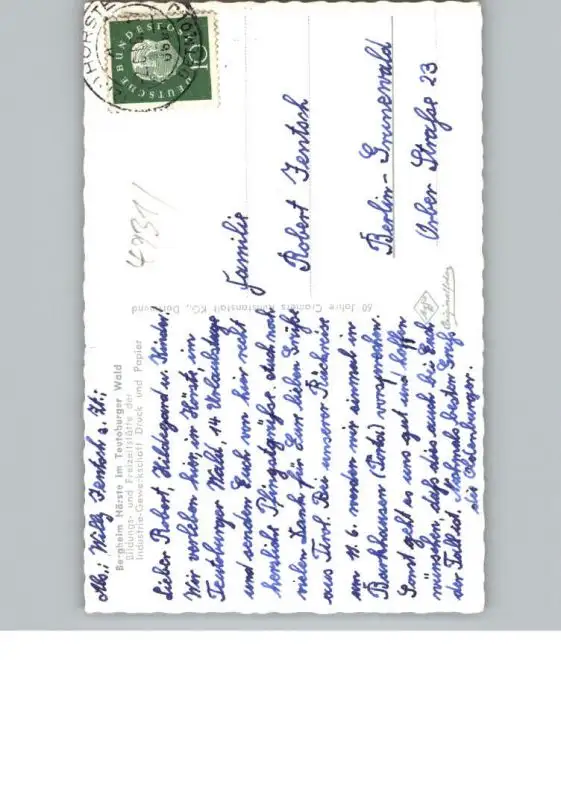 Abs.: Willy Jentsch z. Zt.:
Bergheim Hörste im Teutoburger Wald
Bildungs- und Freizeitstätte der
Industrie-Gewerkschaft Druck und Papier
Lieber Robert, Hildegard u. Kinder,
Wir verleben hier, in Hörste, im
Teutoburger Wald, 14 Urlaubstage
und senden Euch von hier recht
herzliche Pfingstgrüße. Auch noch
vielen Dank für Eure lieben Grüße
aus Tirol. Bei unserer Rückreise
am 11.6. werden wir einmal in
Barkhausen (Porta) vorsprechen.
Sonst geht es uns gut und hoffen
wünschen, daß dies auch bei Euch
der Fall ist. Nochmals besten Gruß
die Oldenburger.
60 Jahre Cramers Kunstanstalt KG., Dortmund
4731/
Familie
Robert Jentsch
Berlin-Grunewald
Orber Straße 23
DEUTSCHE BUNDESPOST
10
HÖRSTE
Agfa
Originalfoto